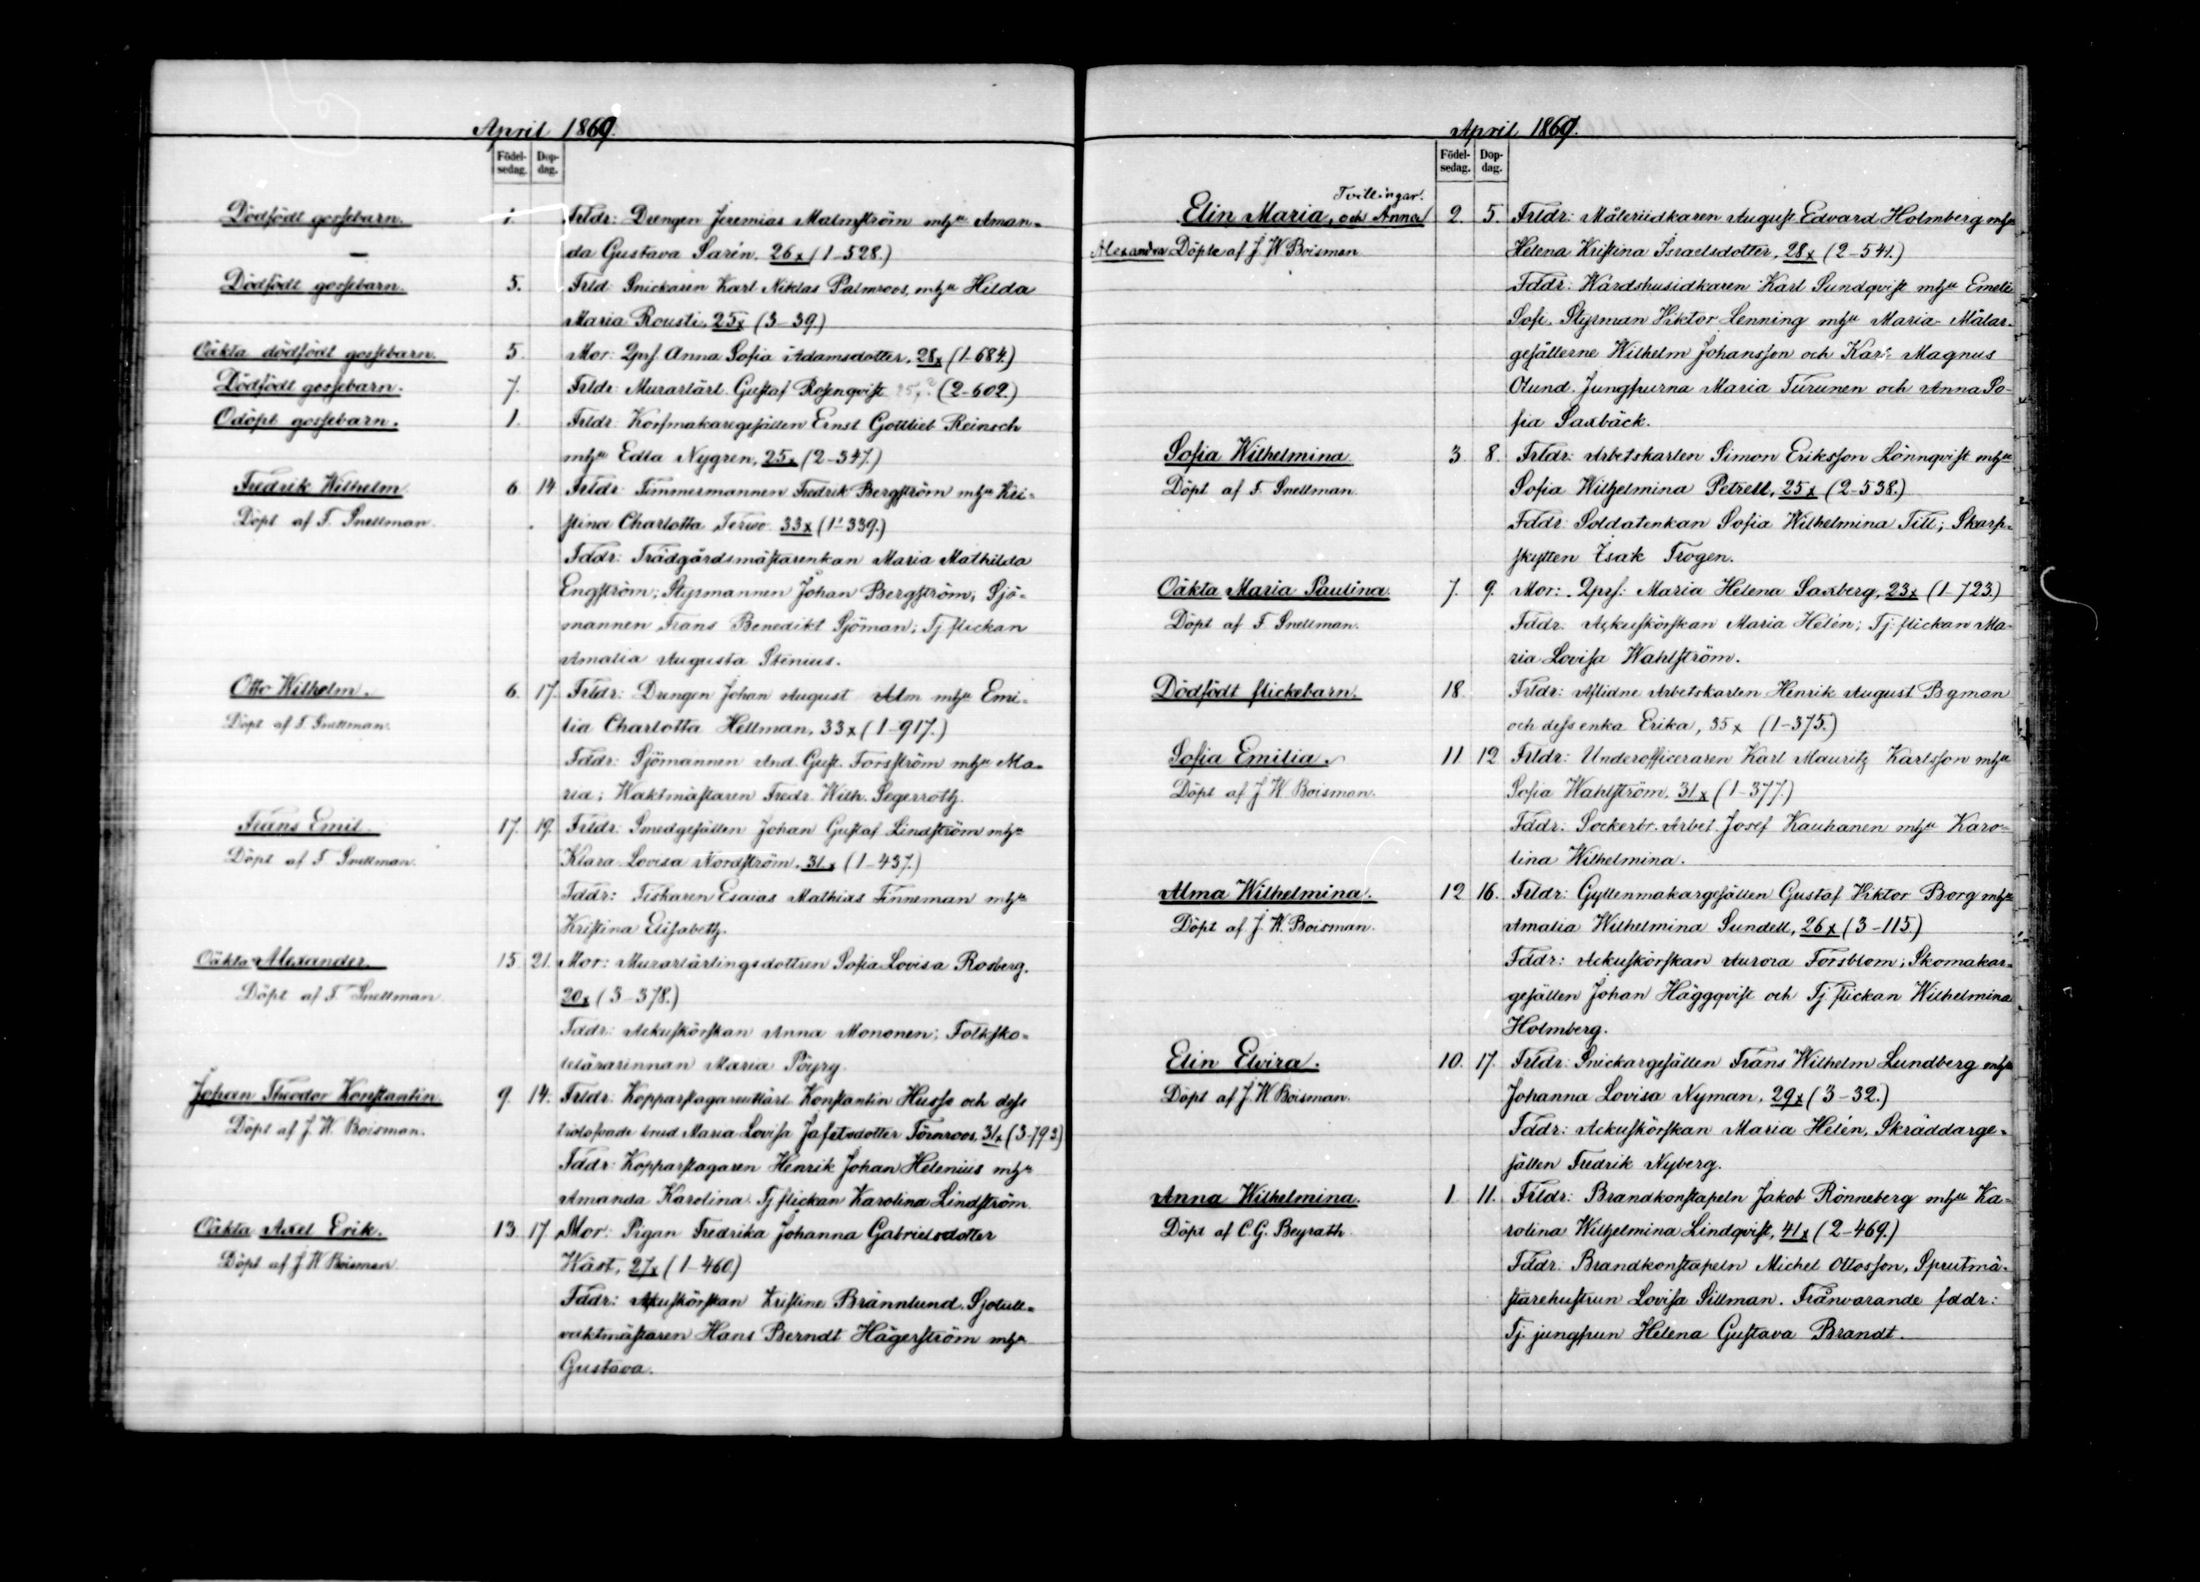 April 1869.
Födel-
sedag.
Dop-
dag.
Dödfödt gossebarn. 1. Frldr: Drengen Jeremias Malmström mhu Aman-
da Gustava Sarén. 26x (1-528.)
Dödfödt gossebarn. 3. Frld: Snickaren Karl Niklas Palmroos, mhu Hilda
Maria Rousti, 25x (3-39.)
Oäkta dödfödt gossebarn. 5. Mor: Qprs. Anna Sofia Adamsdotter, 28x (1-684.)
Dödfödt gossebarn. 7. Frldr: Murarlärl. Gustaf Rosenqvist 25,? (2-602.)
Odöpt gossebarn. 1. Frldr: Korfmakaregesällen Ernst Gottlieb Reinsch
mhu Edla Nygren, 25x (2-347.)
Fredrik Wilhelm 6. 14. Frldr: Timmermannen Fredrik Bergström mhu Kri-
Döpt af F. Snellman. stina Charlotta 33x (1-339.)
Fddr: Trädgårdsmästarenkan Maria Mathilda
Engström; Styrmannen Johan Bergström; Sjö-
mannen Frans Benedikt Sjöman; Tj flickan
Amalia Augusta Stenius.
Otto Wilhelm. 6. 17. Frldr: Drengen Johan August Alm mhu Emi-
Döpt af F. Snellman. lia Charlotta Hellman, 33x (1-917.)
Fddr: Sjömannen And. Gust. Forsström mhu Ma-
ria; Waktmästaren Fredr. Wilh. Segerroth.
Frans Emil 17. 19. Frldr: Smedgesällen Johan Gustaf Lindström mhu
Döpt af F. Snellman. Klara Lovisa Nordström, 31x (1-437.)
Fddr: Fiskaren Esaias Mathias Finneman mhu
Kristina Elisabeth.
Oäkta Alexander. 15. 21. Mor: Murarlärlingsdottren Sofia Lovisa Rosberg.
Döpt af F. Snellman. 20x (3-378.)
Fddr: Ackuskörskan Anna Mononen; Folksko-
lelärarinnan Maria Pöyry.
Johan Theodor Konstantin 9. 14. Frldr: Kopparslagarelärl. Konstantin Husso och dess
Döpt af J. W. Boisman. trolofvade brud Maria Lovisa Jafetsdotter Törnroos, 31x (3-793)
Fddr: Kopparslagaren Henrik Johan Helenius mhu
Amanda Karolina. Tj flickan Karolina Lindström.
Oäkta Axel Erik. 13. 17. Mor: Pigan Fredrika Johanna Gabrielsdotter
Döpt af J. W. Boisman. Wäst, 27x (1-460.)
Fddr: Ackuskörskan Kristine Brännlund. Sjötull-
vaktmästaren Hans Berndt Hägerström mhu
Gustava.
April 1869.
Födel-
sedag.
Dop-
dag.
Tvillingar.
Elin Maria, och Anna 2. 5. Frldr: Måleriidkaren August Edvard Holmberg mhu
Alexandra Döpte af J W Boisman Helena Kristina Israelsdotter, 28x (2-541.)
Fddr: Wärdshusidkaren Karl Sundqvist mhu Emeli
Sofi. Styrman Viktor Henning mhu Maria. Målar-
gesällerne Wilhelm Johansson och Karl Magnus
Ölund. Jungfrurna Maria Turunen och Anna So-
fia Saxbäck.
Sofia Wilhelmina 3. 8. Frldr: Arbetskarlen Simon Eriksson Lönnqvist mhu
Döpt af F. Snellman. Sofia Wilhelmina Petrell, 25x (2-538.)
Fddr: Soldatenkan Sofia Wilhelmina Till; Skarp-
skytten Isak Trogen.
Oäkta Maria Paulina. 7. 9. Mor: Qprs: Maria Helena Saxberg, 23x (1-723.)
Döpt af F. Snellman. Fddr: Ackuskörskan Maria Helén; Tj. flickan Ma-
ria Lovisa Wahlström.
Dödfödt flickebarn. 18. Frldr: Aflidne Arbetskarlen Henrik August Byman
och dess enka Erika, 35x (1-375.)
Sofia Emilia. 11. 12. Frldr: Underofficeraren Karl Mauritz Karlsson mhu
Döpt af J. W. Boisman. Sofia Wahlström, 31x (1-377.)
Fddr: Sockerbr. Arbet. Josef Kauhanen mhu Karo-
lina Wilhelmina.
Alma Wilhelmina. 12. 16. Frldr: Gyllenmakargesällen Gustaf Viktor Borg mhu
Döpt af J. W. Boisman. Amalia Wilhelmina Sundell, 26x (3-115)
Fddr: Ackuskörskan Aurora Forsblom; Skomakar-
gesällen Johan Häggqvist och Tj. flickan Wilhelmina
Holmberg.
Elin Elvira. 10. 17. Frldr: Snickargesällen Frans Wilhelm Lundberg mhu
Döpt af J. W Boisman. Johanna Lovisa Nyman, 29x (3-32.)
Fddr: Ackuskörskan Maria Helén, Skräddarge-
sällen Fredrik Nyberg.
Anna Wilhelmina. 1. 11. Frldr: Brandkonstapeln Jakob Rönneberg mhu Ka-
Döpt af C. G. Beyrath. rolina Wilhelmina Lindqvist, 41x (2-469.)
Fddr: Brandkonstapeln Michel Ottosson, Sprutmä-
starehustrun Lovisa Sillman. Frånvarande fddr:
Tj. jungfrun Helena Gustava Brandt.